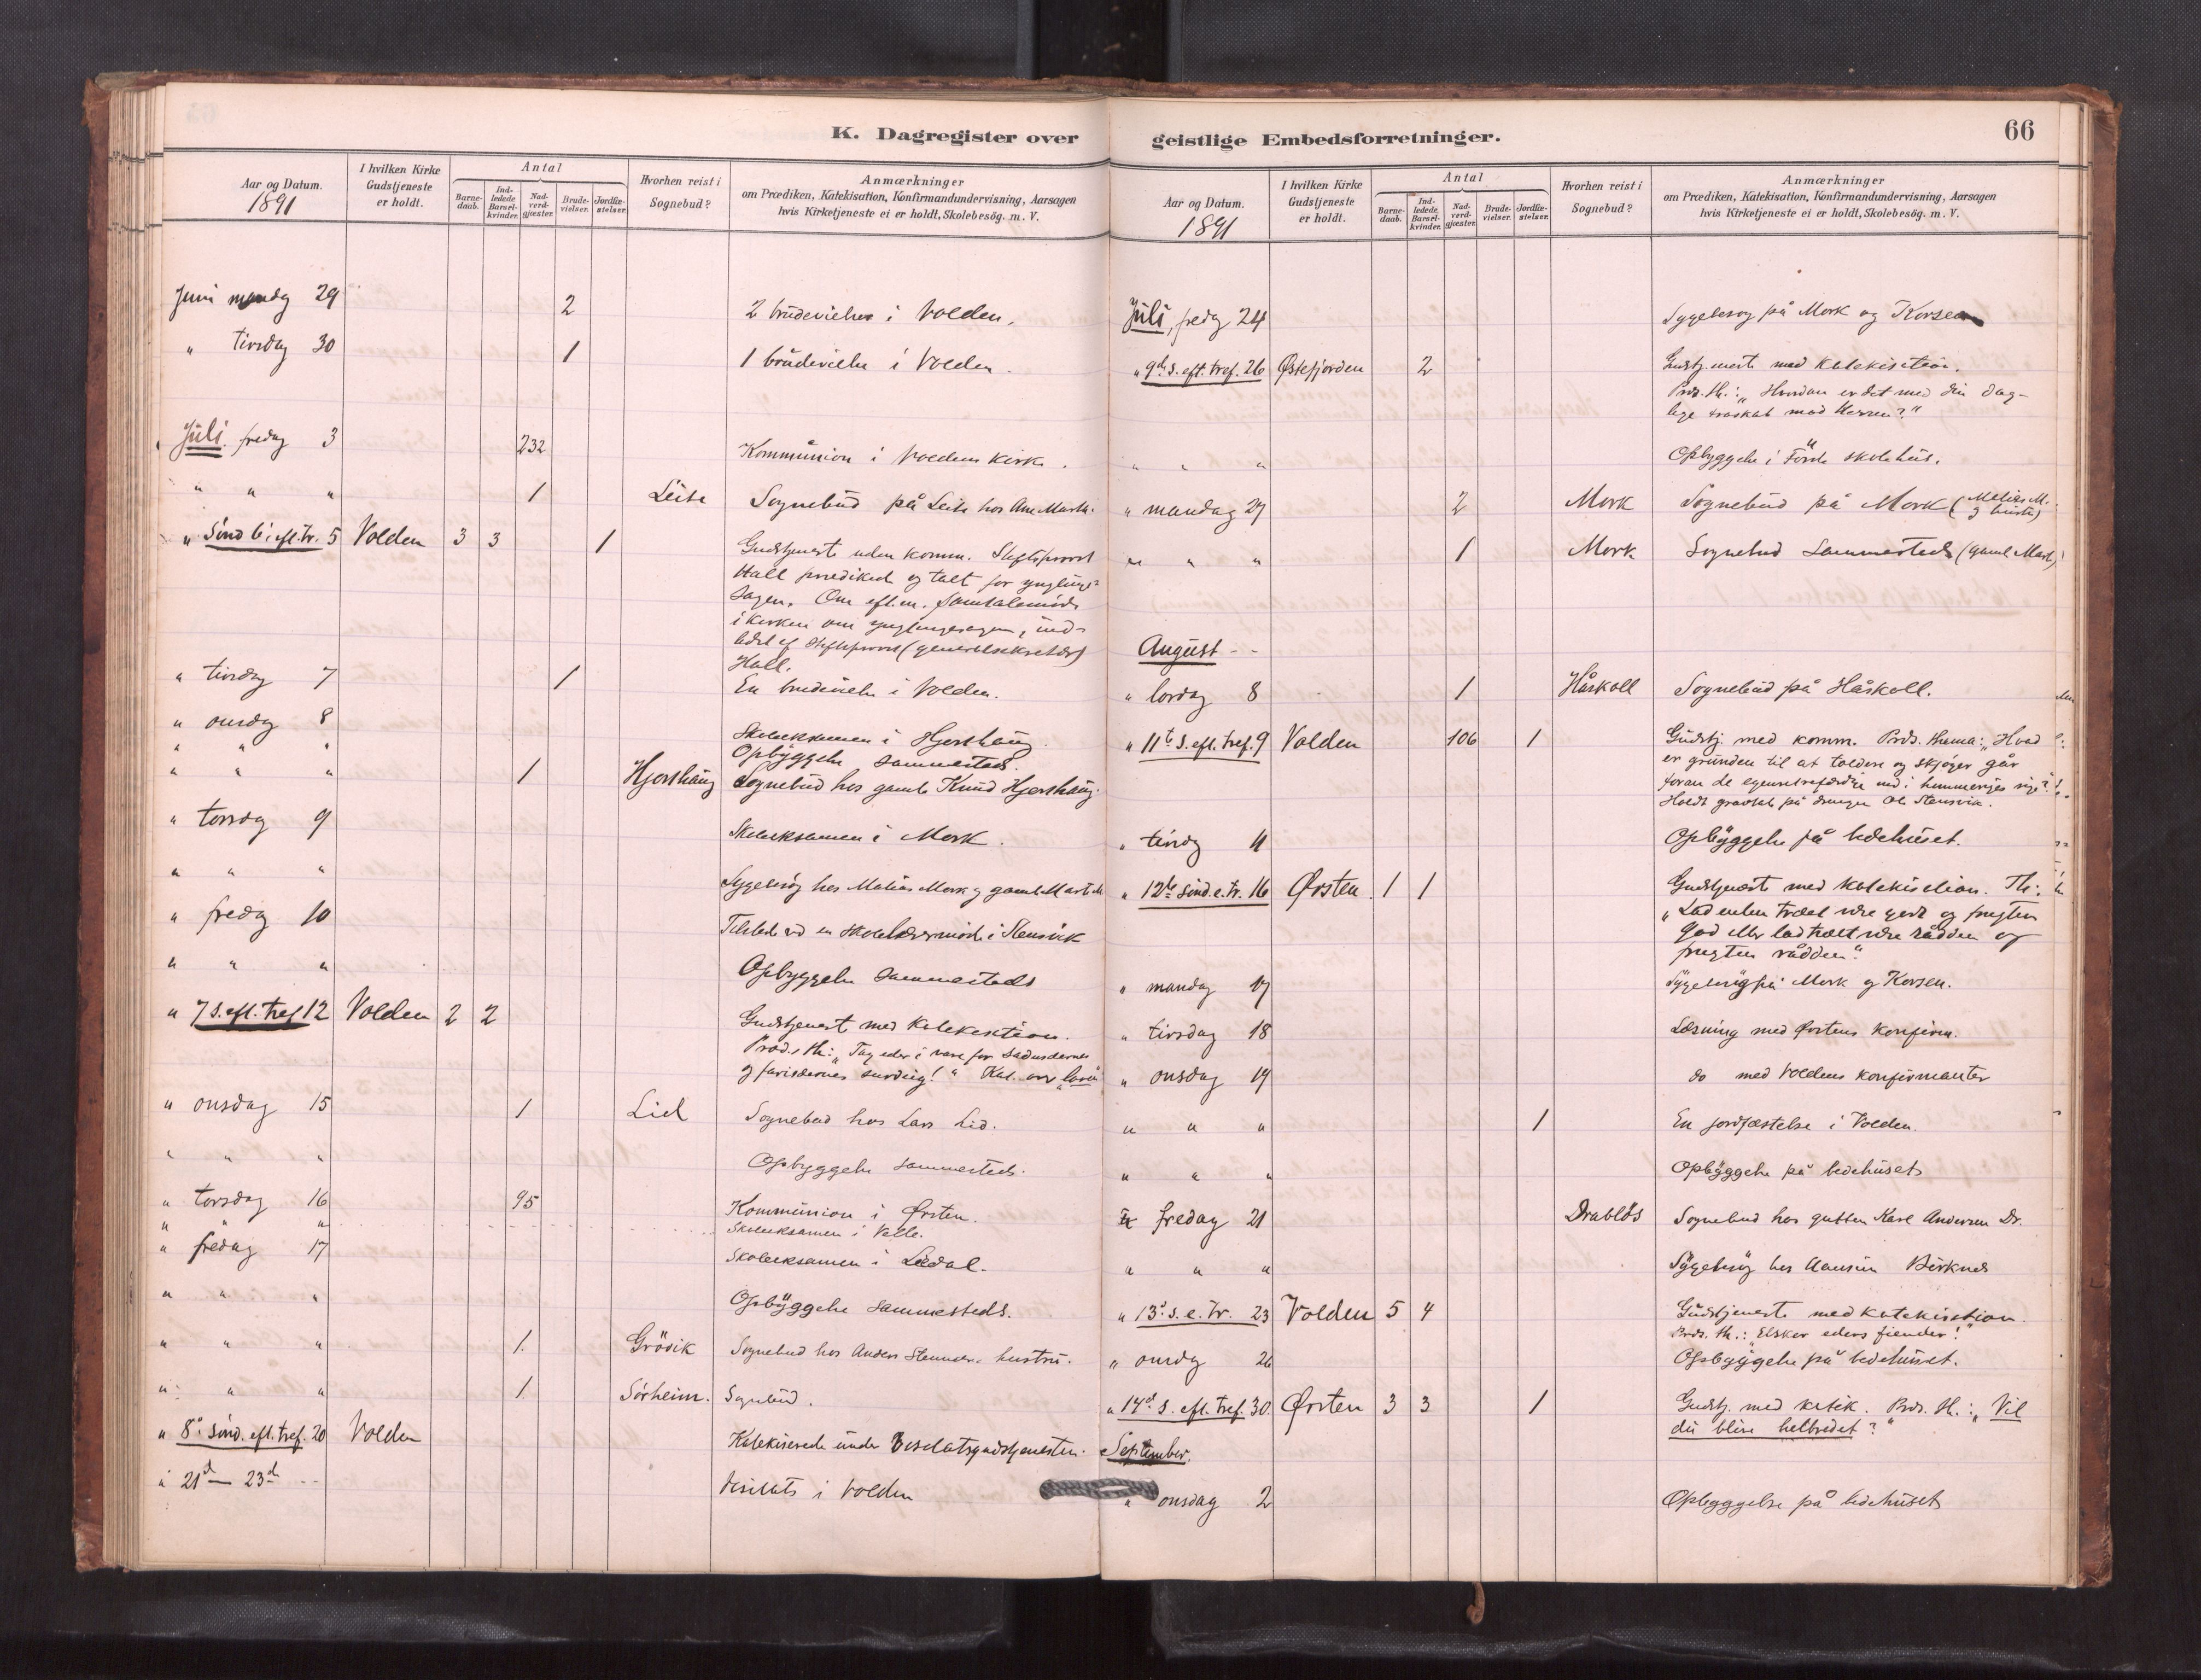 66
K. Dagregister over
geistlige Embedsforretninger.
Aar og Datum.
1891
I hvilken Kirke
Gudstjeneste
er holdt.
Antal
Barne-
daab.
Ind-
ledede
Barsel-
kvinder.
Nad-
verd-
gjæster.
Brude-
vielser.
Jordfæ-
stelser
Hvorhen reist i
Sognebud?
Anmærkninger
om Prædiken, Katekisation, Konfirmandundervisning, Aarsagen
hvis Kirketjeneste ei er holdt, Skolebesög. m. V.
Juni mandg 29 2 2 brudevielser i Volden.
" tirsdag 30 1 1 brudevielse i Volden.
Juli. fredag 3 232 Kommunion i Voldens Kirke.
" " " 1 Leite Sognebud på Leite hos Ane Marta.
" Sönd 6. eft. tr. 5 Volden 3 3 1 Gudstjeneste uden komm. Stiftsprovst
Hall prædiked og talt for ynglings-
sagen. Om eft.m. samtalemöde
i kirken om ynglingesagen, ind-
ledet af stiftsprovst (generalsekretær)
Hall.
" tirsdag 7 1 En brudevielse i Volden.
" onsdag 8 Skoleeksamen i Hjorthaug
" " " Opbyggelse sammesteds.
" " " 1 Hjorthaug Sognebud hos gamle Knud Hjorthaug.
" torsdag 9 Skoleeksamen i Mork.
" " " Sygebesög hos Matias Mork og gamle Marte M
" fredag 10 Tilstede ved en skolelærermöde i Stensvik
" " " Opbyggelse sammesteds
" 7 s. eft. tref 12 Volden 2 2 Gudstjenest med Katekisation.
Præd.s th: „Tag eder i vare for sadusæernes
og farisæernes surdeig!" Kat. over „loven"
" onsdag 15 1 Lid Sognebud hos Lars Lid.
" " " Opbyggelse sammesteds.
" torsdag 16 95 Kommunion i Ørsten.
" " " Skoleeksamen i Velle.
" fredag 17 Skoleeksamen i Liadal.
" " " Opbyggelse sammesteds.
" " " 1. Grövik Sognebud hos Anders hustru.
" " " 1. Sörheim. Sognebud.
" 8de sönd. eft. tref. 20 Volden Katekiserede under Visitatsgudstjenesten.
" 21d — 23d -- Visitats i Volden
Aar og Datum.
1891
I hvilken Kirke
Gudstjeneste
er holdt.
Antal
Barne-
daab.
Ind-
ledede
Barsel-
kvinder.
Nad-
verd-
gjæster.
Brude-
vielser.
Jordfæ-
stelser
Hvorhen reist i
Sognebud?
Anmærkninger
om Prædiken, Katekisation, Konfirmandundervisning, Aarsagen
hvis Kirketjeneste ei er holdt, Skolebesög. m. V.
Juli, fredg 24 Sygebesog på Mork og Korsen
" 9de s. eft. tref. 26 Østefjorden 2 Gudstjeneste med Katekisation.
Præd. th.: „Hvordan er det med din dag-
lige troskab mod Herren?"
" " " Opbyggelse i Förde skolehus.
" mandag 27 2 Mork Sognebud på Mork (Matias M.
& hustr)
" " " 1 Mork Sognebud sammesteds (gamle Mart)
August --
" lordag 8 1 Håskoll Sognebud på Håskoll.
" 11te s. eft. tref. 9 Volden 106 1 Gudstj. med komm. Præd. thema: „Hvad
er grunden til at toldere og skjöger går
foran de egenretfærdige ind i himmeriges rige?"
Holdt gravtale på drengen Ole Stensvik.
" tirsdg 11 Opbyggelse på bedehuset.
" 12te sönd. e. tr. 16 Ørsten 1 1 Gudstjeneste med Katekisation. Th:
„Lad enten træet være godt og frugten
god eller lad træet være rådden og
frugten rådden".
" mandag 17 Sygebesög på Mork og Korsen.
" tirsdag 18 Læsning med Ørstens konfirm.
" onsdag 19 do med Voldens konfirmanter
" " " 1 En jordfæstelse i Volden.
" " " Opbyggelse på bedehuset
" fredag 21 Drablös Sognebud hos gutten Karl Andersen Dr.
" " " Sygebesög hos Birknes
" 13d. s. e. tr. 23 Volden 5 4 Gudstjeneste med katekisation
Præd. th.: „Elsker eders fiender!"
" onsdg 26 Opbyggelse på bedehuset.
" 14d. s. eft. tref. 30 Ørsten 3 3 1 Gudstj. med katek. Præd. th.: „Vil
du blive helbredet?"
September.
" onsdag 2 Opbyggelse på bedehuset